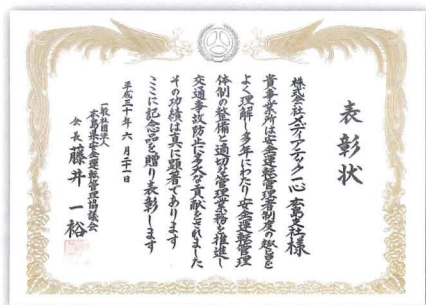 表彰状
株式会社メディアニック一心 広島支社様
貴事業所は安全運転管理者制度の趣旨を
よく理解し多年にわたり安全運転管理
体制の整備と適切な管理業務を推進し
交通事故防止に多大な貢献をされました
その功績は真に顕著であります
ここに記念品を贈り表彰します
平成三十年六月二十一日
一般社団法人
広島県安全運転管理協議会
会長 藤井一裕